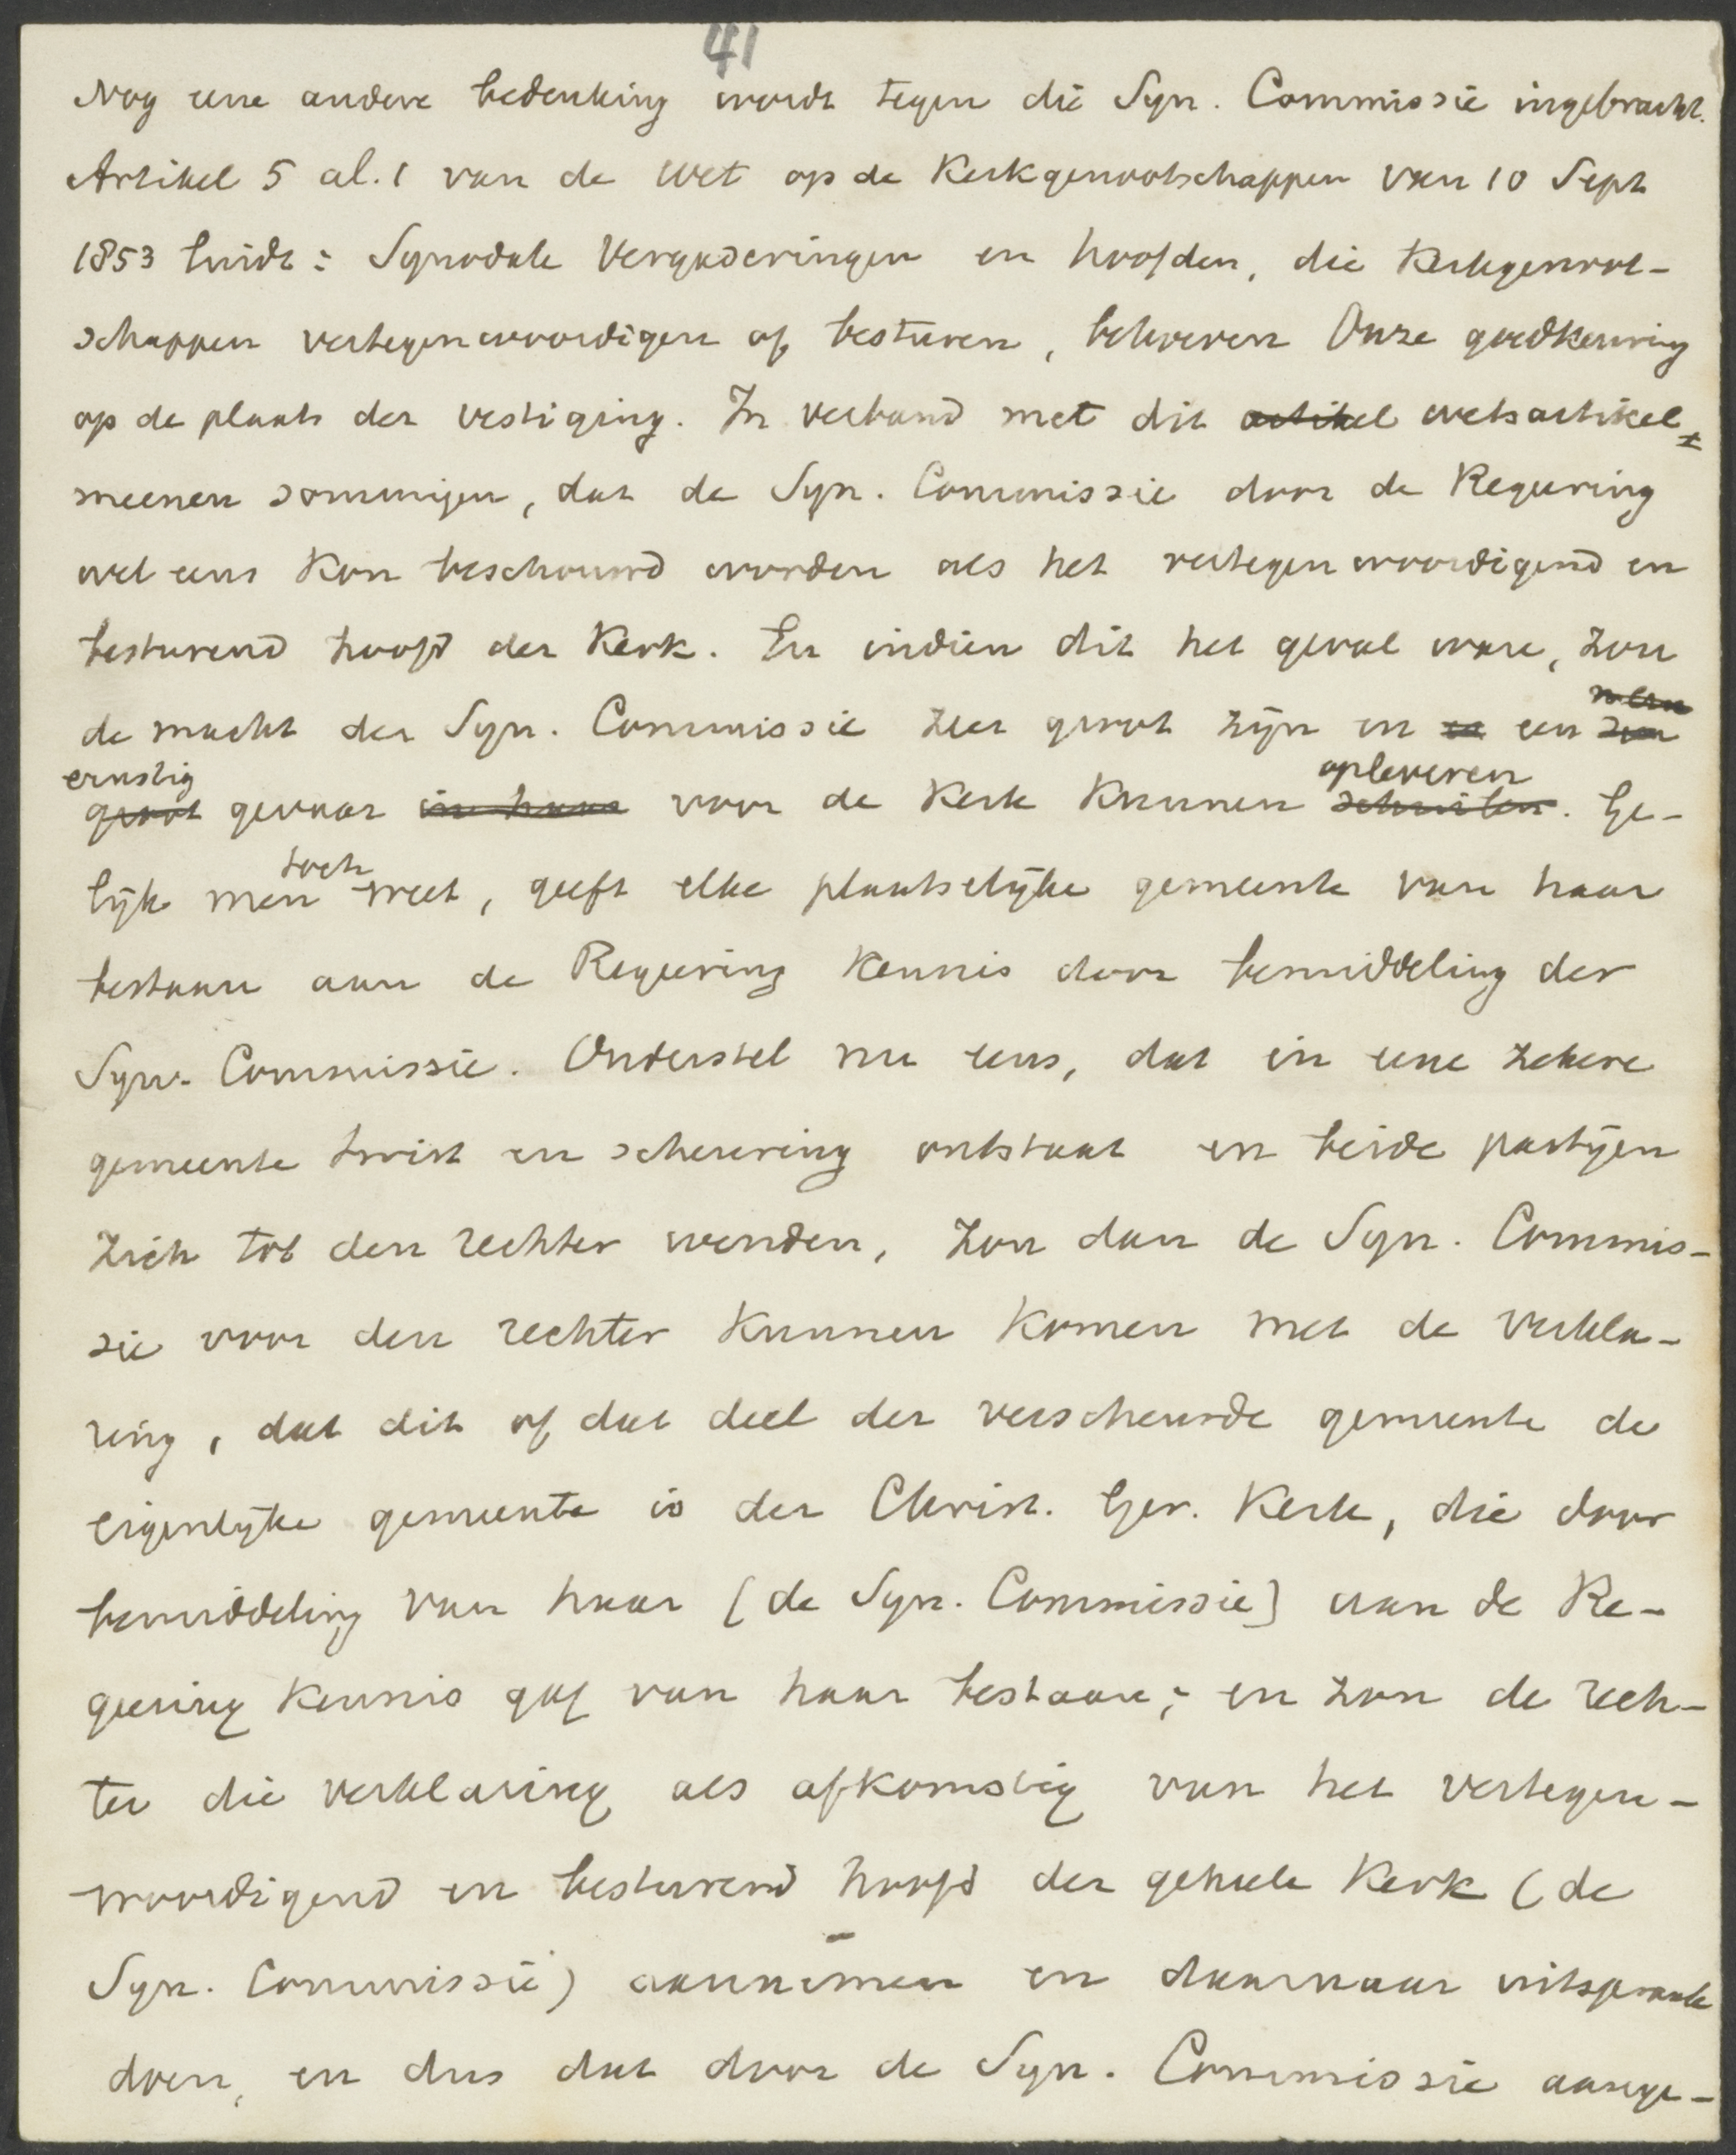 41
Nog eene andere bedenking wordt tegen die Syn. Commissie ingebracht.
Artikel 5 al. 1 van de wet op de Kerkgenootschappen van 10 Sept
1853 luidt: Synodale Vergaderingen en hoofden, die Kerkgenoot-
schappen vertegenwoordigen of besturen, behoeven Onze goedkeuring
op de plaats der vestiging. In verband met dit artikel wetsartikel
meenen sommigen, dat de Syn. Commissie door de Regeering
wel eens kon beschouwd worden als het vertegenwoordigend en
besturend hoofd der Kerk. En indien dit het geval ware, zou
de macht der Syn. Commissie zeer groot zijn en een
ernstig opleveren
groot gevaar in haar voor de Kerk kunnen schuilen. Ge-
toch
lijk men weet, geeft elke plaatselijke gemeente van haar
bestaan aan de Regeering kennis door bemiddeling der
Syn. Commissie. Onderstel nu eens, dat in eene zekere
gemeente twist en scheuring ontstaat en beide partijen
zich tot den rechter wenden, zou dan de Syn. Commis-
sie voor den rechter kunnen komen met de verkla-
ring, dat dit of dat deel der verscheurde gemeente de
eigenlijke gemeente is der Christ. Ger. Kerk, die door
bemiddeling van haar [de Syn. Commissie] aan de Re-
geering kennis gaf van haar bestaan; en zou de rech-
ter die verklaring als afkomstig van het vertegen-
woordigend en besturend hoofd der geheele Kerk (de
Syn. Commissie) aannemen en daarnaar uitspraak
doen, en dus dat door de Syn. Commissie aange-